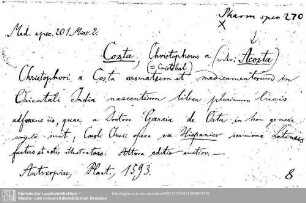 Pharm. spec. 270
X
Med. spec. 201. Misc. 2.
Costa, Christophorus a (vide: Acosta)
(= Cristóbal)
Christophori a Costa aromatum et medicamentorum in
Orientali India nascentium liber: plurimum lucis
adferens iis, quae a Doctore Garcia de Orta in hoc genere
scripta sunt, Caroli Clusii opera ex Hispanico sermone Latinus
factus et notis illustratus. Altera editio
Antverpiae, Plant., 1593.
8
Sächsische Landesbibliothek -